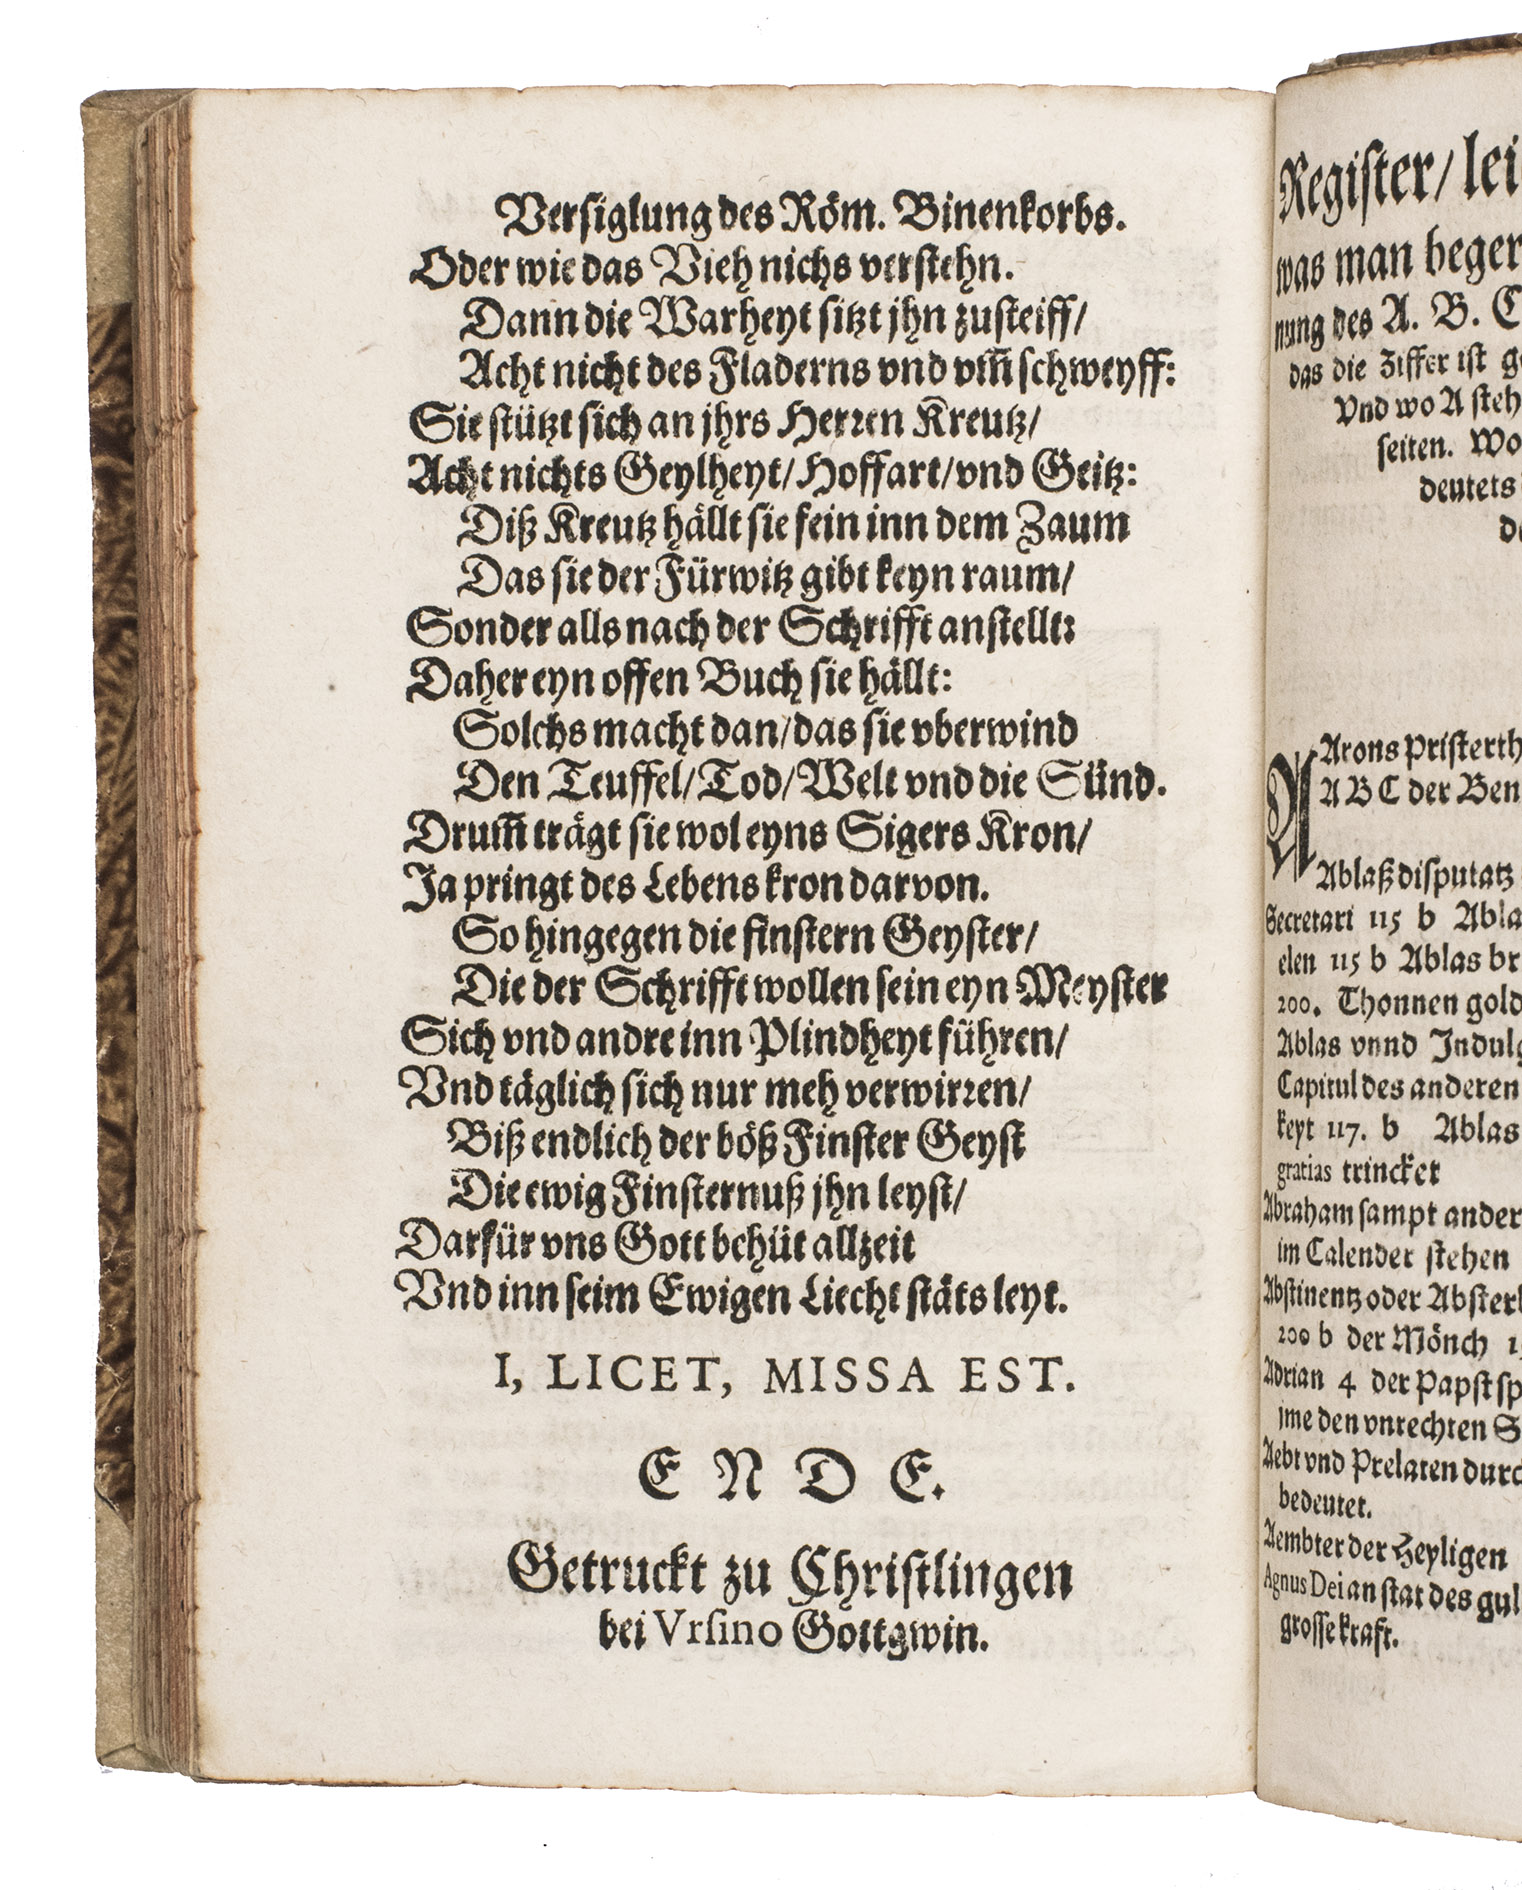 Versiglung des Röm. Binenkorbs.
Oder wie das Vieh nichs verstehn.
Dann die Warheyt sitzt jhn zusteiff/
Acht nicht des Fladerns vnd vm̃schweyff:
Sie stützt sich an jhrs Herren Kreutz/
Acht nichts Geylheyt/ Hoffart/ vnd Geitz:
Diß Kreutz hällt sie fein inn dem Zaum
Das sie der Fürwitz gibt keyn raum/
Sonder alls nach der Schrifft anstellt:
Daher eyn offen Buch sie hällt:
Solchs macht dan/ das sie vberwind
Den Teuffel/ Tod/ Welt vnd die Sünd.
Drum̃ trägt sie wol eyns Sigers Kron/
Ja pringt des Lebens kron darvon.
So hingegen die finstern Geyster/
Die der Schrifft wollen sein eyn Meyster
Sich vnd andre inn Plindheyt führen/
Vnd täglich sich nur meh verwirren/
Biß endlich der böß Finster Geyst
Die ewig Finsternuß jhn leyst/
Darfür vns Gott behüt allzeit
Vnd inn seim Ewigen Liecht stäts leyt.
I, LICET, MISSA EST.
E N D E.
Getruckt zu Christlingen
bei Vrsino Gottgwin.
Register/ lei
was man beger
nung des A. B. C
das die Ziffer ist g
Vnd wo A steh
seiten. Wo
deutets
d
Arons Pristerth
A B C der Ben
Ablaß disputatz
Secretari 115 b Abla
elen 115 b Ablas br
200. Thonnen gold
Ablas vnnd Indulg
Capitul des anderen
keyt 117. b Ablas
gratias trincket
Abraham sampt ander
im Calender stehen
Abstinentz oder Abster
200 b der Mönch 1
Adrian 4 der Papst sp
jme den vnrechten S
Aebt vnd Prelaten durc
bedeutet.
Aembter der Heyligen
Agnus Dei an stat des gul
grosse kraft.